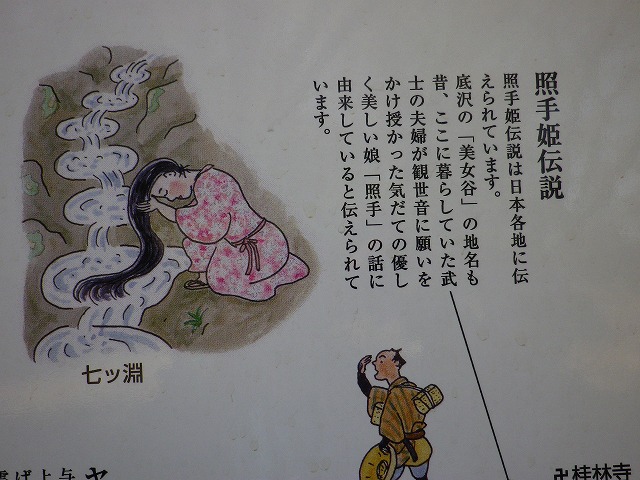 照手姫伝説
照手姫伝説は日本各地に伝
えられています。
底沢の「美女谷」の地名も
昔、ここに暮らしていた武
士の夫婦が観世音に願いを
かけ授かった気だての優し
く美しい娘「照手」の話に
由来していると伝えられて
います。
七ッ淵
卍桂林寺